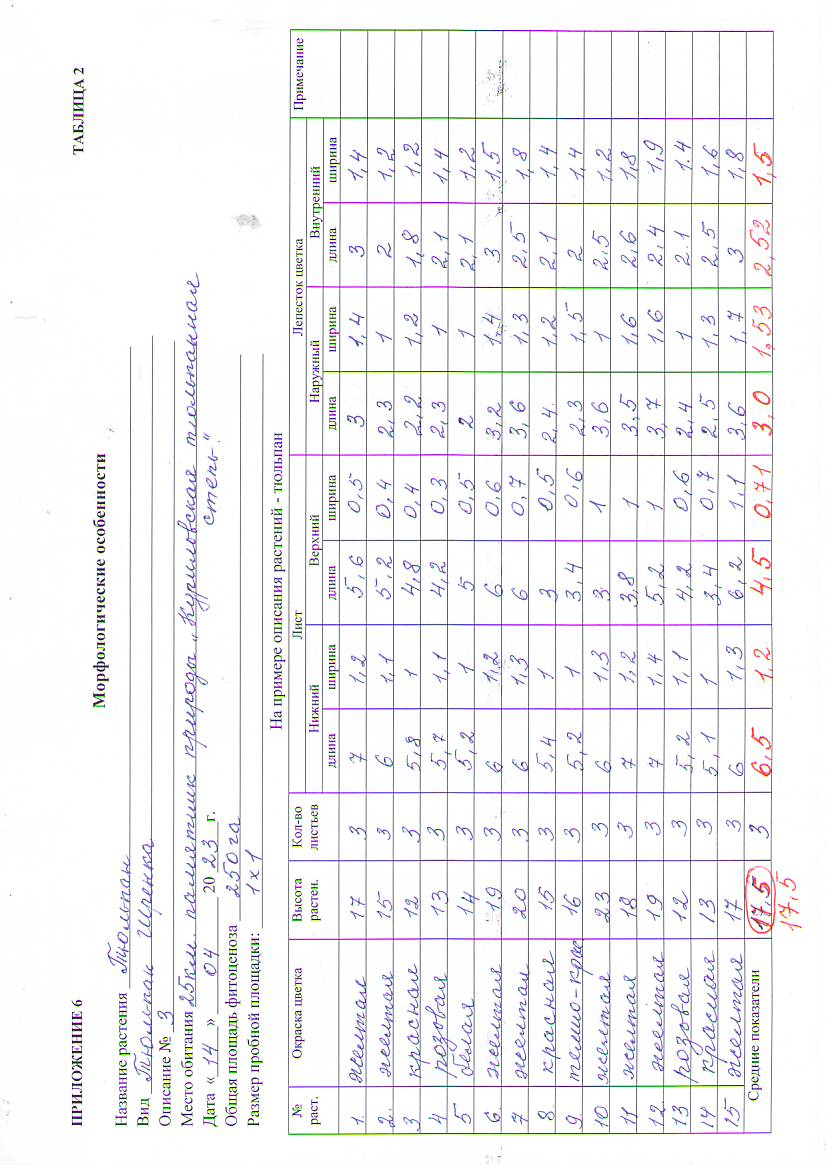 ПРИЛОЖЕНИЕ 6 ТАБЛИЦА 2
Морфологические особенности
Название растения Тюльпан
Вид Тюльпан Шренка
Описание № 3
Место обитания 25км. памятник природы „Куриловская тюльпанная степь"
Дата « 14 » 04 20 23 г.
Общая площадь фитоценоза 250 га
Размер пробной площадки: 1х1
На примере описания растений - тюльпан
№ раст. Окраска цветка Высота растен. Кол-во листьев Лист Лепесток цветка Примечание
Нижний Верхний Наружный Внутренний
длина ширина длина ширина длина ширина длина ширина
1. желтая 17 3 7 1,2 5,6 0,5 3 1,4 3 1,4
2. желтая 15 3 6 1,1 5,2 0,4 2,3 1 2 1,2
3 красная 12 3 5,8 1 4,8 0,4 2,2 1,2 1,8 1,2
4 розовая 13 3 5,7 1,1 4,2 0,3 2,3 1 2,1 1,4
5 белая 14 3 5,2 1 5 0,5 2 1 2,1 1,2
6. желтая 19 3 6 1,2 6 0,6 3,2 1,4 3 1,5
7 желтая 20 3 6 1,3 6 0,7 3,6 1,3 2,5 1,8
8. красная 15 3 5,4 1 3 0,5 2,4 1,2 2,1 1,4
9. темно-крас 16 3 5,2 1 3,4 0,6 2,3 1,5 2 1,4
10 желтая 23 3 6 1,3 3 1 3,6 1 2,5 1,2
11 желтая 18 3 7 1,2 3,8 1 3,5 1,6 2,6 1,8
12. желтая 19 3 7 1,4 5,2 1 3,7 1,6 2,4 1,9
13 розовая 12 3 5,2 1,1 4,2 0,6 2,4 1 2.1 1.4
14 красная 13 3 5,1 1 3,4 0,7 2,5 1,3 2,5 1,6
15 желтая 17 3 6 1,3 6,2 1,1 3,6 1,7 3 1,8
Средние показатели 17,5 3 6,5 1,2 4,5 0,71 3,0 1,53 2,52 1,5
17,5